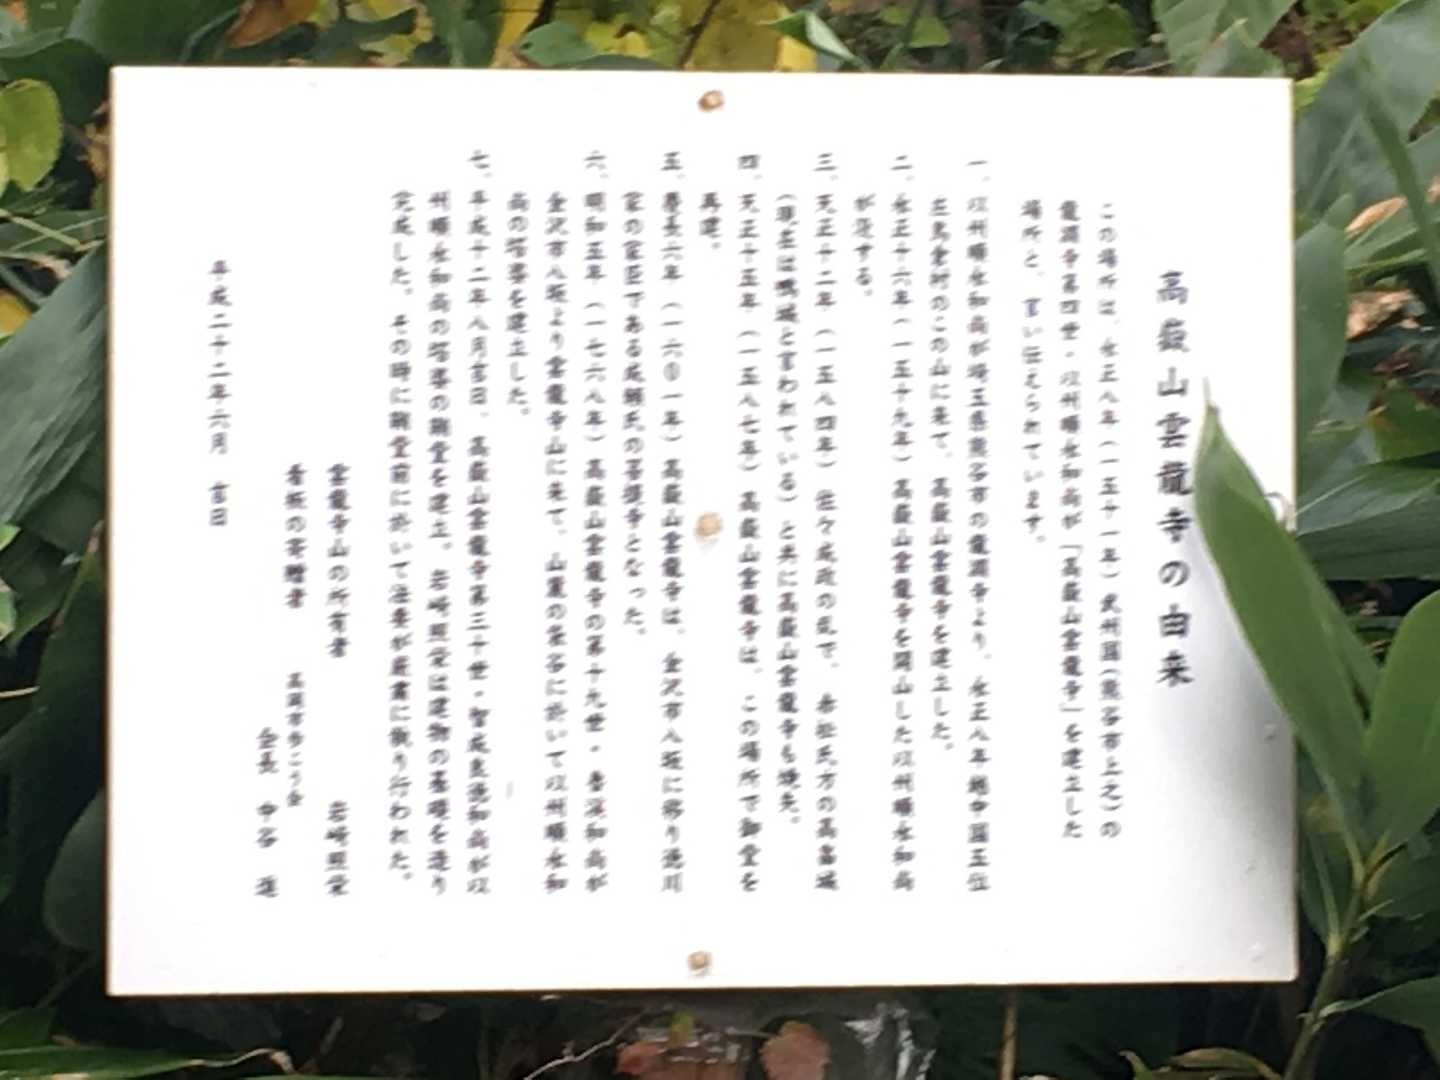 高嶽山雲龍寺の由来
この場所は、永正八年（一五十一年）武州国（熊谷市上之）の
龍渕寺第四世・以州順永和尚が「高嶽山雲龍寺」を建立した
場所と、言い伝えられています。
一、以州順永和尚が埼玉県熊谷市の龍渕寺より、永正八年越中国五位
庄鳥倉村のこの山に来て、高嶽山雲龍寺を建立した。
二、永正十六年（一五十九年）高嶽山雲龍寺を開山した以州順永和尚
がする。
三、天正十二年（一五八四年）佐々成政の乱で、赤松氏方の高畠城
（現在は鴨城と言われている）と共に高嶽山雲龍寺も焼失。
四、天正十五年（一五八七年）高嶽山雲龍寺は、この場所で御堂を
再建。
五、慶長六年（一六〇一年）高嶽山雲龍寺は、金沢市八坂に移り徳川
家の家臣である成瀬氏の菩提寺となった。
六、明和五年（一七六八年）高嶽山雲龍寺の第十九世・香演和尚が
金沢市八坂より雲龍寺山に来て、山裏の釜谷に於いて以州順永和
尚の塔婆を建立した。
七、平成十二年八月吉日、高嶽山雲龍寺第三十世・智成良徳和尚が以
州順永和尚の塔婆の鞘堂を建立。岩崎照栄は建物の基礎を造り
完成した。その時に鞘堂前に於いて法要が厳粛に執り行われた。
雲龍寺山の所有者　岩崎照栄
看板の寄贈者　高岡市歩こう会
会長　中谷　進
平成二十二年六月　吉日